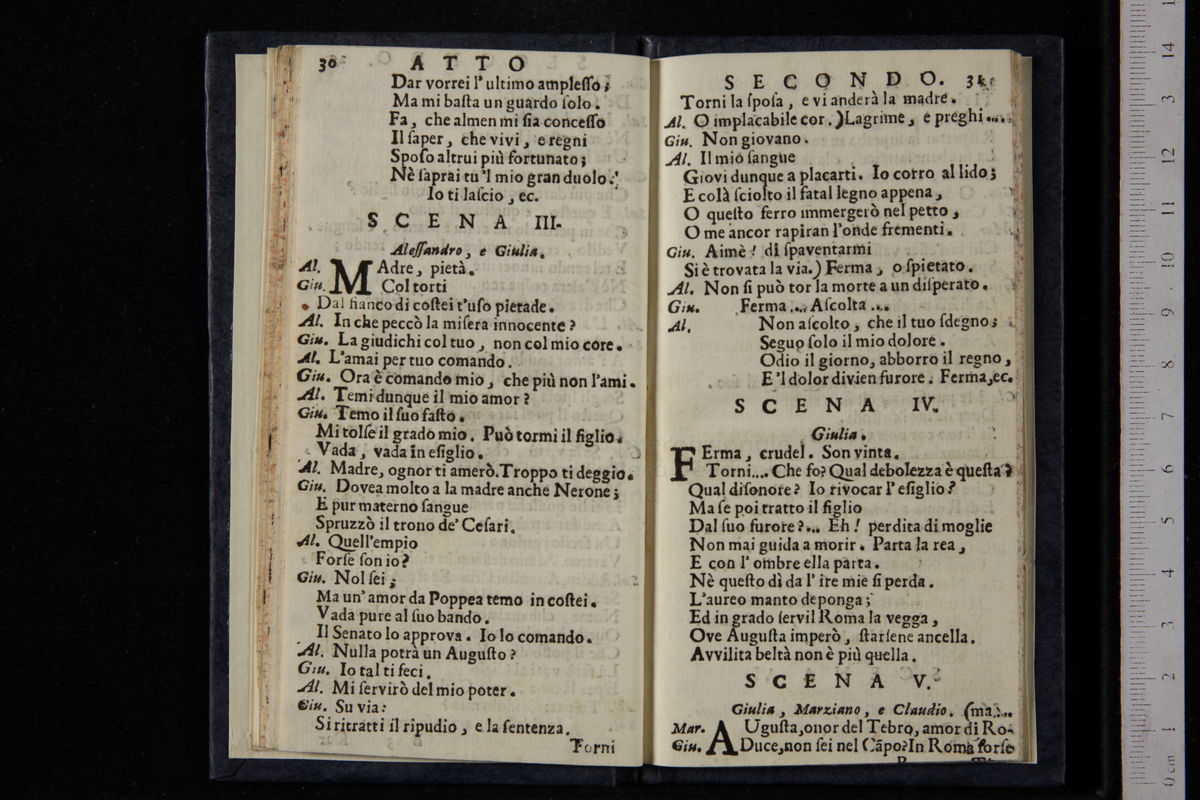 30 ATTO
Dar vorrei l'ultimo ampleſſo;
Ma mi baſta un guardo ſolo.
Fa, che almen mi ſia conceſſo
Il ſaper, che vivi, e regni
Spoſo altrui più fortunato;
Nè ſaprai tu 'l mio gran duolo.
Io ti laſcio, ec.
SCENA III.
Aleſſandro, e Giulia.
Al. MAdre, pietà.
Giu. Col torti
Dal fianco di coſtei t'uſo pietade.
Al. In che peccò la miſera innocente?
Giu. La giudichi col tuo, non col mio core.
Al. L'amai per tuo comando.
Giu. Ora è comando mio, che più non l'ami.
Al. Temi dunque il mio amor?
Giu. Temo il ſuo faſto.
Mi tolſe il grado mio. Può tormi il figlio.
Vada, vada in eſiglio.
Al. Madre, ognor ti amerò. Troppo ti deggio.
Giu. Dovea molto a la madre anche Nerone;
E pur materno ſangue
Spruzzò il trono de' Ceſari.
Al. Quell'empio
Forſe ſon io?
Giu. Nol ſei;
Ma un' amor da Poppea temo in coſtei.
Vada pure al ſuo bando.
Il Senato lo approva. Io lo comando.
Al. Nulla potrà un Auguſto?
Giu. Io tal ti feci.
Al. Mi ſervirò del mio poter.
Giu. Su via:
Si ritratti il ripudio, e la ſentenza.
Torni
SECONDO. 31
Torni la ſpoſa, e vi anderà la madre.
Al. O implacabile cor.) Lagrime, e preghi....
Giu. Non giovano.
Al. Il mio ſangue
Giovi dunque a placarti. Io corro al lido;
E colà ſciolto il fatal legno appena,
O queſto ferro immergerò nel petto,
O me ancor rapiran l'onde frementi.
Giu. Aimè! di ſpaventarmi
Si è trovata la via.) Ferma, o ſpietato.
Al. Non ſi può tor la morte a un diſperato.
Giu. Ferma... Aſcolta...
Al. Non aſcolto, che il tuo ſdegno;
Seguo ſolo il mio dolore.
Odio il giorno, abborro il regno,
E 'l dolor divien furore. Ferma, ec.
SCENA IV.
Giulia.
FErma, crudel. Son vinta.
Torni.... Che fo? Qual debolezza è queſta?
Qual diſonore? Io rivocar l'eſiglio?
Ma ſe poi tratto il figlio
Dal ſuo furore?... Eh! perdita di moglie
Non mai guida a morir. Parta la rea,
E con l'ombre ella parta.
Nè queſto dì da l'ire mie ſi perda.
L'aureo manto deponga;
Ed in grado ſervil Roma la vegga,
Ove Auguſta imperò, ſtarſene ancella.
Avvilita beltà non è più quella.
SCENA V.
Giulia, Marziano, e Claudio. (ma...
Mar. AUguſta, onor del Tebro, amor di Ro-
Giu. Duce, non ſei nel Cãpo? In Roma forſe